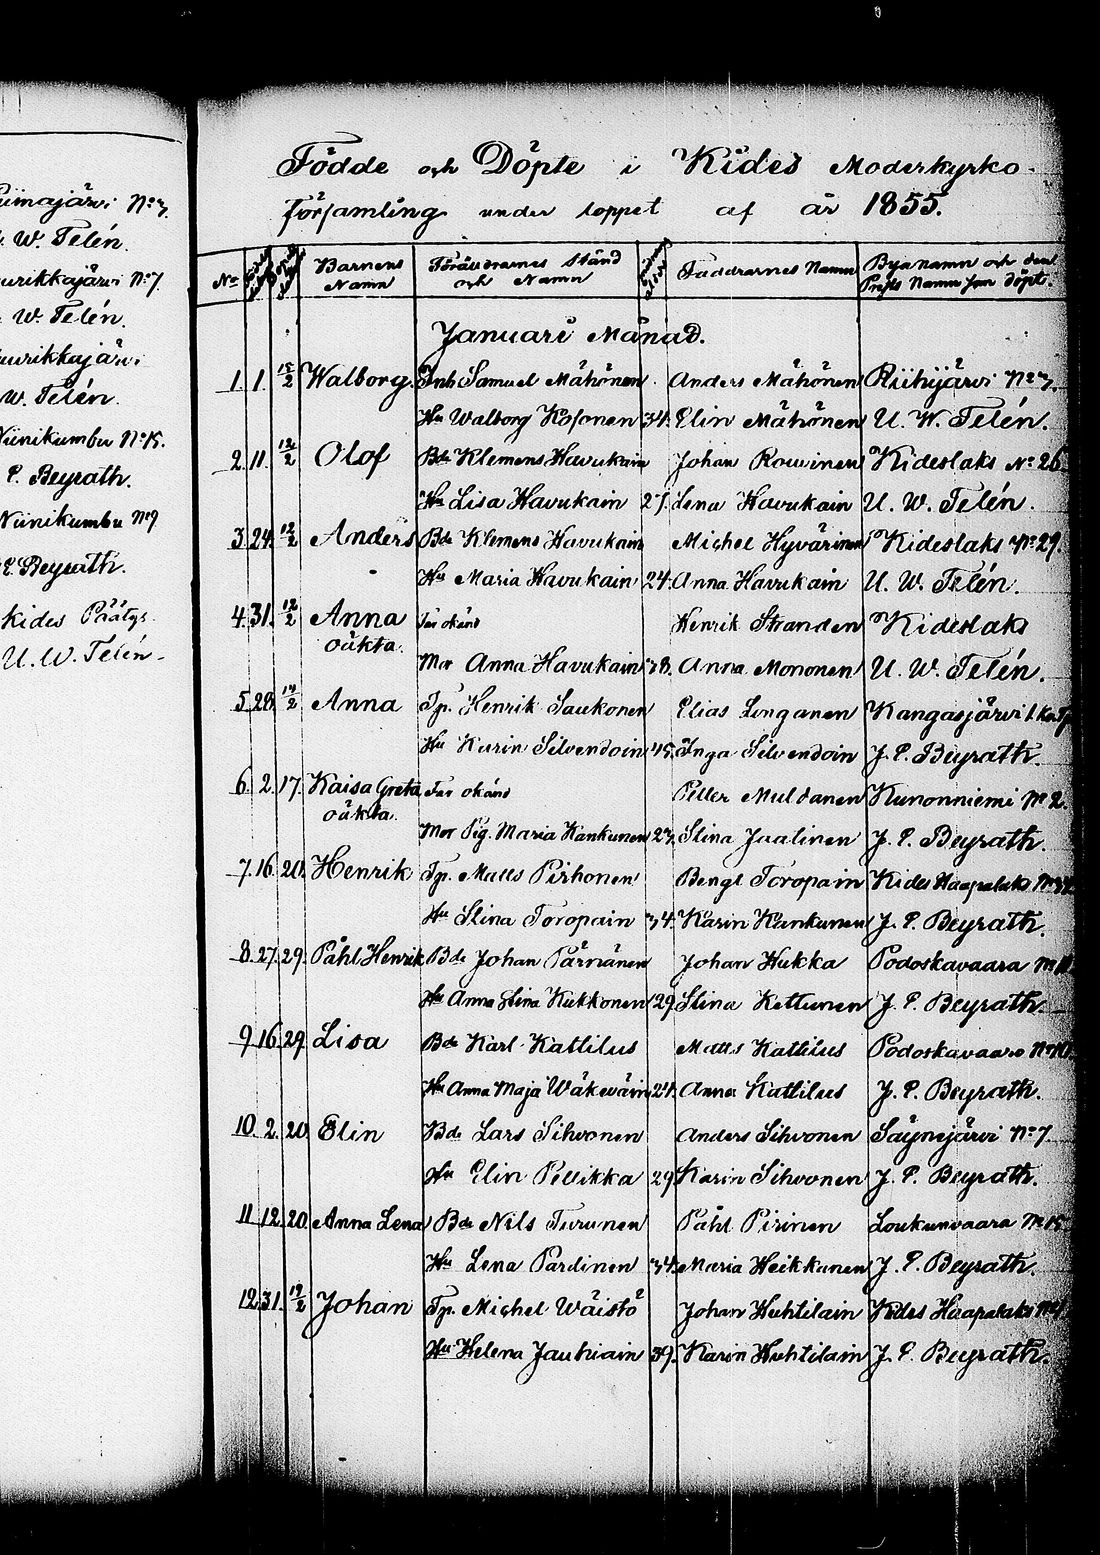 iimajärvi No 7.
U. W. Telén.
urikkajärvi No 7.
W. Telén.
urikkajärvi
W. Telén.
Niinikumbu No 15.
P. Beyrath.
Niinikumbu No 9
P. Beyrath.
Kides Päätys
U. W. Telén.
Födde och Döpte i Kides Moderkyrko-
församling under loppet af år 1855.
No Barnens Namn Föräldrarnes Stånd och Namn Faddrarnes Namn Byanamn och den Prests Namn som döpt.
Januari Månad.
1. 1. 12/2 Walborg. Inh Samuel Mähönen Anders Mähönen Riihijärvi No 7.
Hu Walborg Kosonen 34. Elin Mähönen U. W. Telén.
2. 11. 12/2 Olof Bde Klemens Havukain Johan Rouvinen Kideslaks No 26
Hu Lisa Havukain 27. Lena Havukain U. W. Telén.
3. 24. 12/2 Anders Bde Klemens Havukain Michel Hyvärinen Kideslaks No 29.
Hu Maria Havukain 24. Anna Havukain U. W. Telén.
4. 31. 12/2 Anna Far okänd Henrik Stranden Kideslaks
oäkta.
Mor Anna Havukain 38. Anna Mononen U. W. Telén.
5. 28. 14/2 Anna Tp. Henrik Saukonen Elias Longanen Kangasjärvi
Hu Karin Silvendoin 45. Inga Silvendoin J. P. Beyrath.
6. 2. 17. Kaisa Greta Far okänd Petter Muldanen Kunonniemi No 2.
oäkta.
Mor Pig. Maria Kankunen 23. Stina Jaalinen J. P. Beyrath.
7. 16. 20. Henrik Tp. Matts Pirhonen Bengt Toropain Kides Haapalaks
Hu Stina Toropain 34. Karin Kankunen J. P. Beyrath.
8. 27. 29. Påhl Henrik Bde Johan Pärnänen Johan Hukka Podoskavaara
Hu Anna Stina Kukkonen 29. Stina Kettunen J. P. Beyrath.
9. 16. 29. Lisa Bde Karl Kattilus Matts Kattilus Podoskavaara No 10.
Hu Anna Maja Wäkeväin 24. Anna Kattilus J. P. Beyrath.
10. 2. 20. Elin Bde Lars Sihvonen Anders Sihvonen Säynejärvi No 7.
Hu Elin Pellikka 29. Karin Sihvonen J. P. Beyrath.
11. 12. 20. Anna Lena Bde Nils Turunen Påhl Pirinen Loukunvaara No 15
Hu Lena Pardinen 34. Maria Heikkanen J. P. Beyrath.
12. 31. 19/2 Johan Tp. Michel Wäistö Johan Huhtilain Kides Haapalaks
Hu Helena Jauhiain 39. Karin Huhtilain J. P. Beyrath.